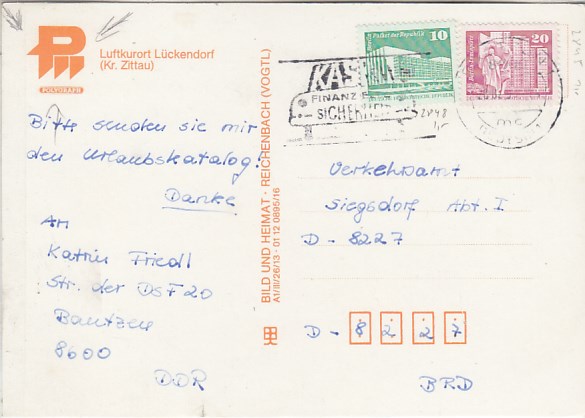 POLYGRAPH
Luftkurort Lückendorf
(Kr. Zittau)
Bitte senden sie mir
den Urlaubskatalog!
Danke
An
Katrin Friedl
Str. der DSF 20
Bautzen
8600
DDR
BILD UND HEIMAT · REICHENBACH (VOGTL)
A1/III/26/13 · 01 12 0895/16
10
Palast der Republik
20
FINANZIE
SICHERHEIT
Verkehrsamt
Siegsdorf Abt. I
D - 8227
D - 8227
BRD